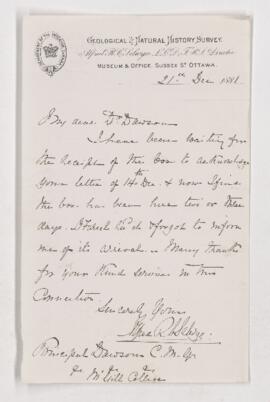 GEOLOGICAL & NATURAL HISTORY SURVEY.
Alfred R. C. Selwyn, L.L.D., F.R.S. Director
MUSEUM & OFFICE. SUSSEX ST OTTAWA.
21st Dec 1881.
My dear Dr Dawson
I have been waiting for
the receipt of the box to acknowledge
your letter of 14th Dec & now I find
the box has been here two or three
days. & forgot to inform
me of its arrival. Many thanks
for your kind services in this
Connection.
Sincerely Yours
Alfred R C Selwyn
Principal Dawson C.M.G.
McGill College